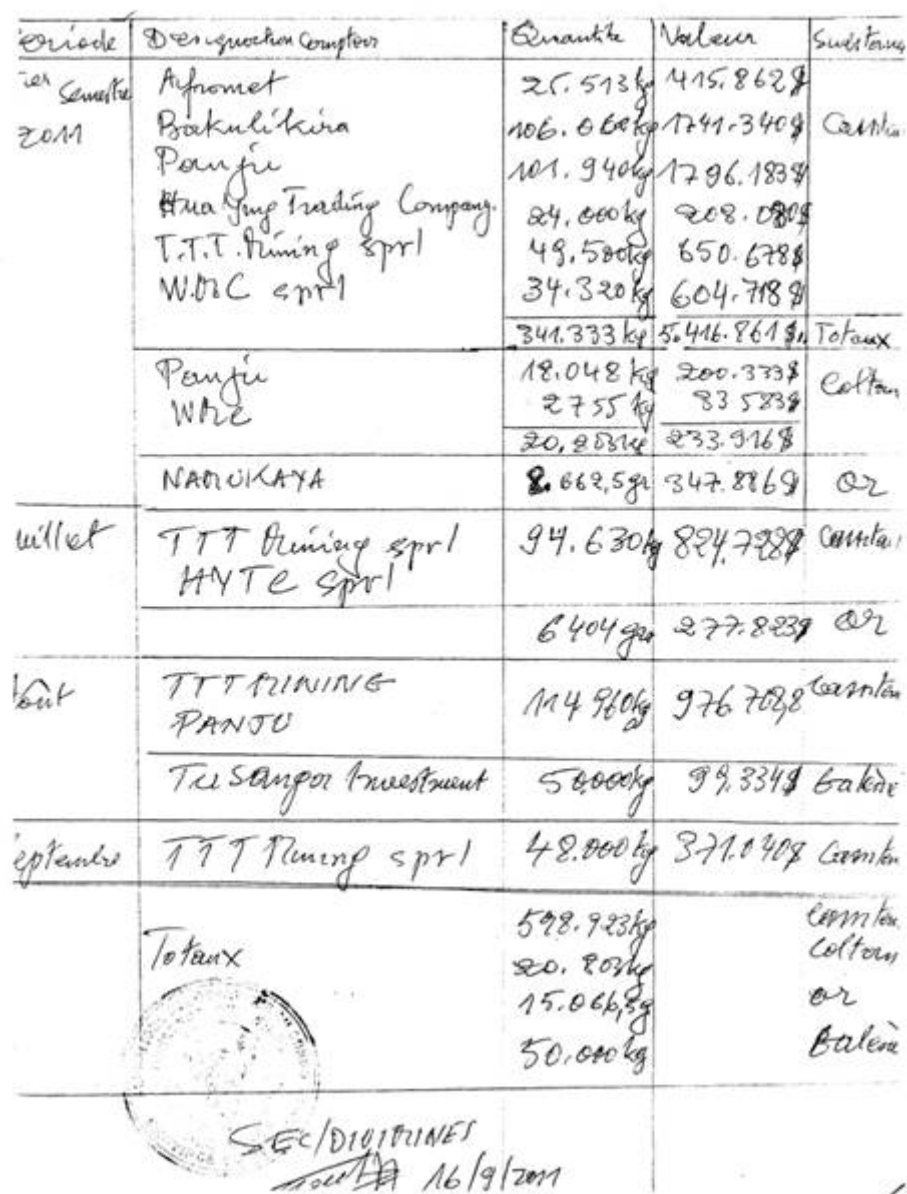 eriode Designation Comptoir Quantité Valeur Substances
ier Semestre Afromet 25.513kg 415.862$
2011 Bakulikira 106.060kg 1741.340$ Cassite
Panju 101.940kg 1796.183$
Hua Ying Trading Company. 24.000kg 208.080$
T.T.T. Mining sprl 49.500kg 650.678$
W.M.C sprl 34.320kg 604.718$
341.333 kg 5.416.861$ Totaux
Panju 18.048 kg 200.333$ Coltan
WMC 2755 kg 83583$
20,803kg 233.916$
NAMUKAYA 8.662,5gr 347.886$ Or
uillet TTT Mining sprl 94.630kg 824.728$ Cassiter
HYTC sprl
6404 grs 277.823$ Or
Août TTT MINING 114 960kg 976702,8 Cassiter
PANJU
Tusangor Investment 50.000kg 99.334$ Galène
eptembre TTT Mining sprl 48.000kg 371.040$ Cassiter
598.923kg Cassiter
Totaux 20.803kg Coltan
15.066,5g or
50.000kg Galène
SEC/DIVIMINES
16/9/2011